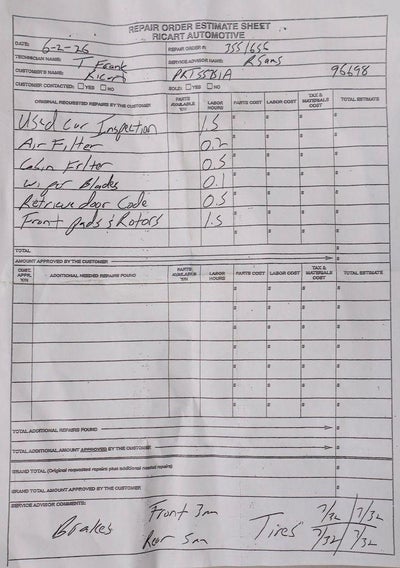 REPAIR ORDER ESTIMATE SHEET
RICART AUTOMOTIVE
DATE: 6-2-26 REPAIR ORDER #: 3551656
TECHNICIAN NAME: T Frank SERVICE ADVISOR NAME:
CUSTOMER'S NAME: Ricart PRT55B1A 96698
CUSTOMER CONTACTED: YES NO SOLD: YES NO
ORIGINAL REQUESTED REPAIRS BY THE CUSTOMER PARTS AVAILABLE Y/N LABOR HOURS PARTS COST LABOR COST TAX & MATERIALS COST TOTAL ESTIMATE
Used Car Inspection 1.5
Air Filter 0.2
Cabin Filter 0.5
wiper Blades 0.1
Retrieve door Code 0.5
Front pads & Rotors 1.5
TOTAL
AMOUNT APPROVED BY THE CUSTOMER
CUST. APPR. Y/N ADDITIONAL NEEDED REPAIRS FOUND PARTS AVAILABLE Y/N LABOR HOURS PARTS COST LABOR COST TAX & MATERIALS COST TOTAL ESTIMATE
TOTAL ADDITIONAL REPAIRS FOUND
TOTAL ADDITIONAL AMOUNT APPROVED BY THE CUSTOMER
GRAND TOTAL (Original requested repairs plus additional needed repairs)
GRAND TOTAL AMOUNT APPROVED BY THE CUSTOMER
SERVICE ADVISOR COMMENTS:
Brakes Front 3m Tires 7/32 7/32
Rear 5m 7/32 7/32